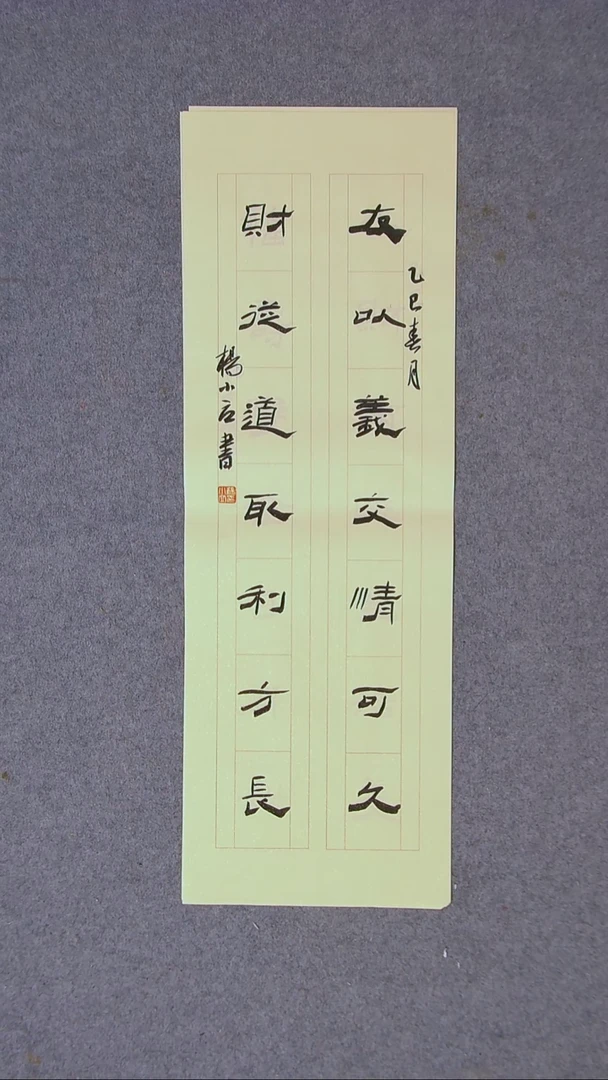 友以義交情可久
乙巳春月
財從道取利方長
楊小石書